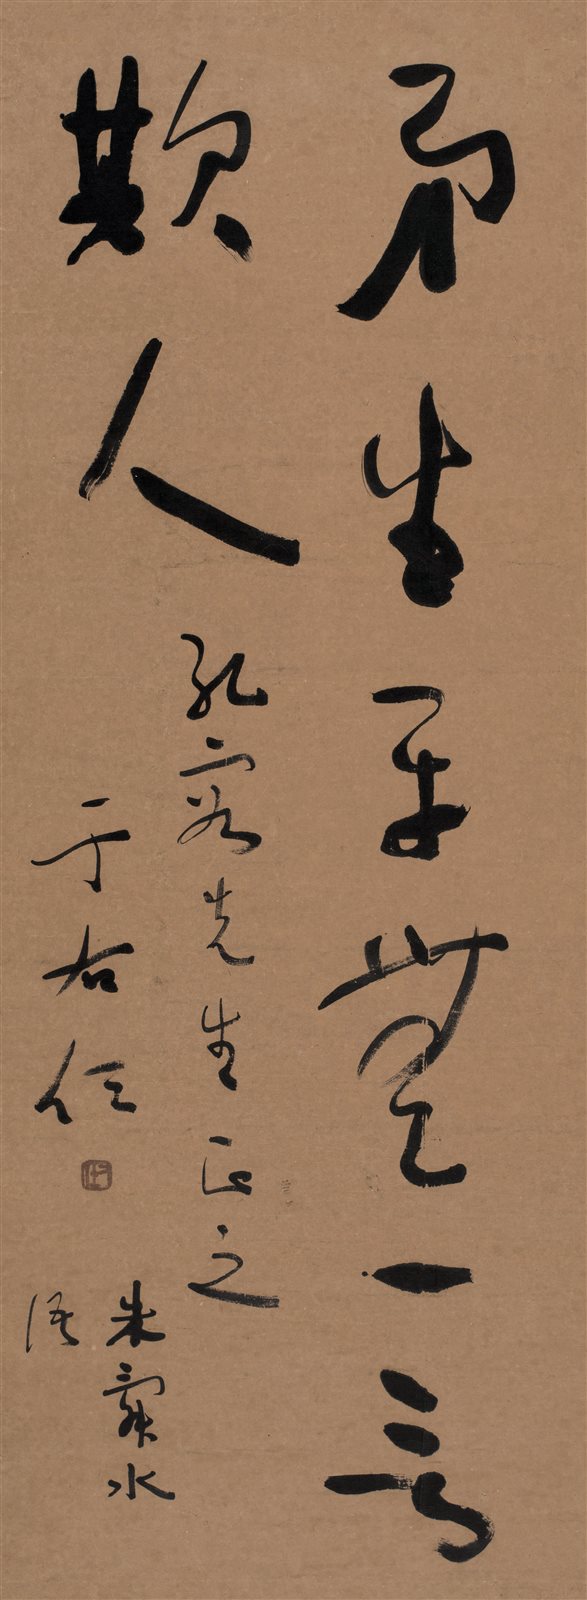 弟生平無一言
欺人
孔先生正之
于右任
朱舜水
語